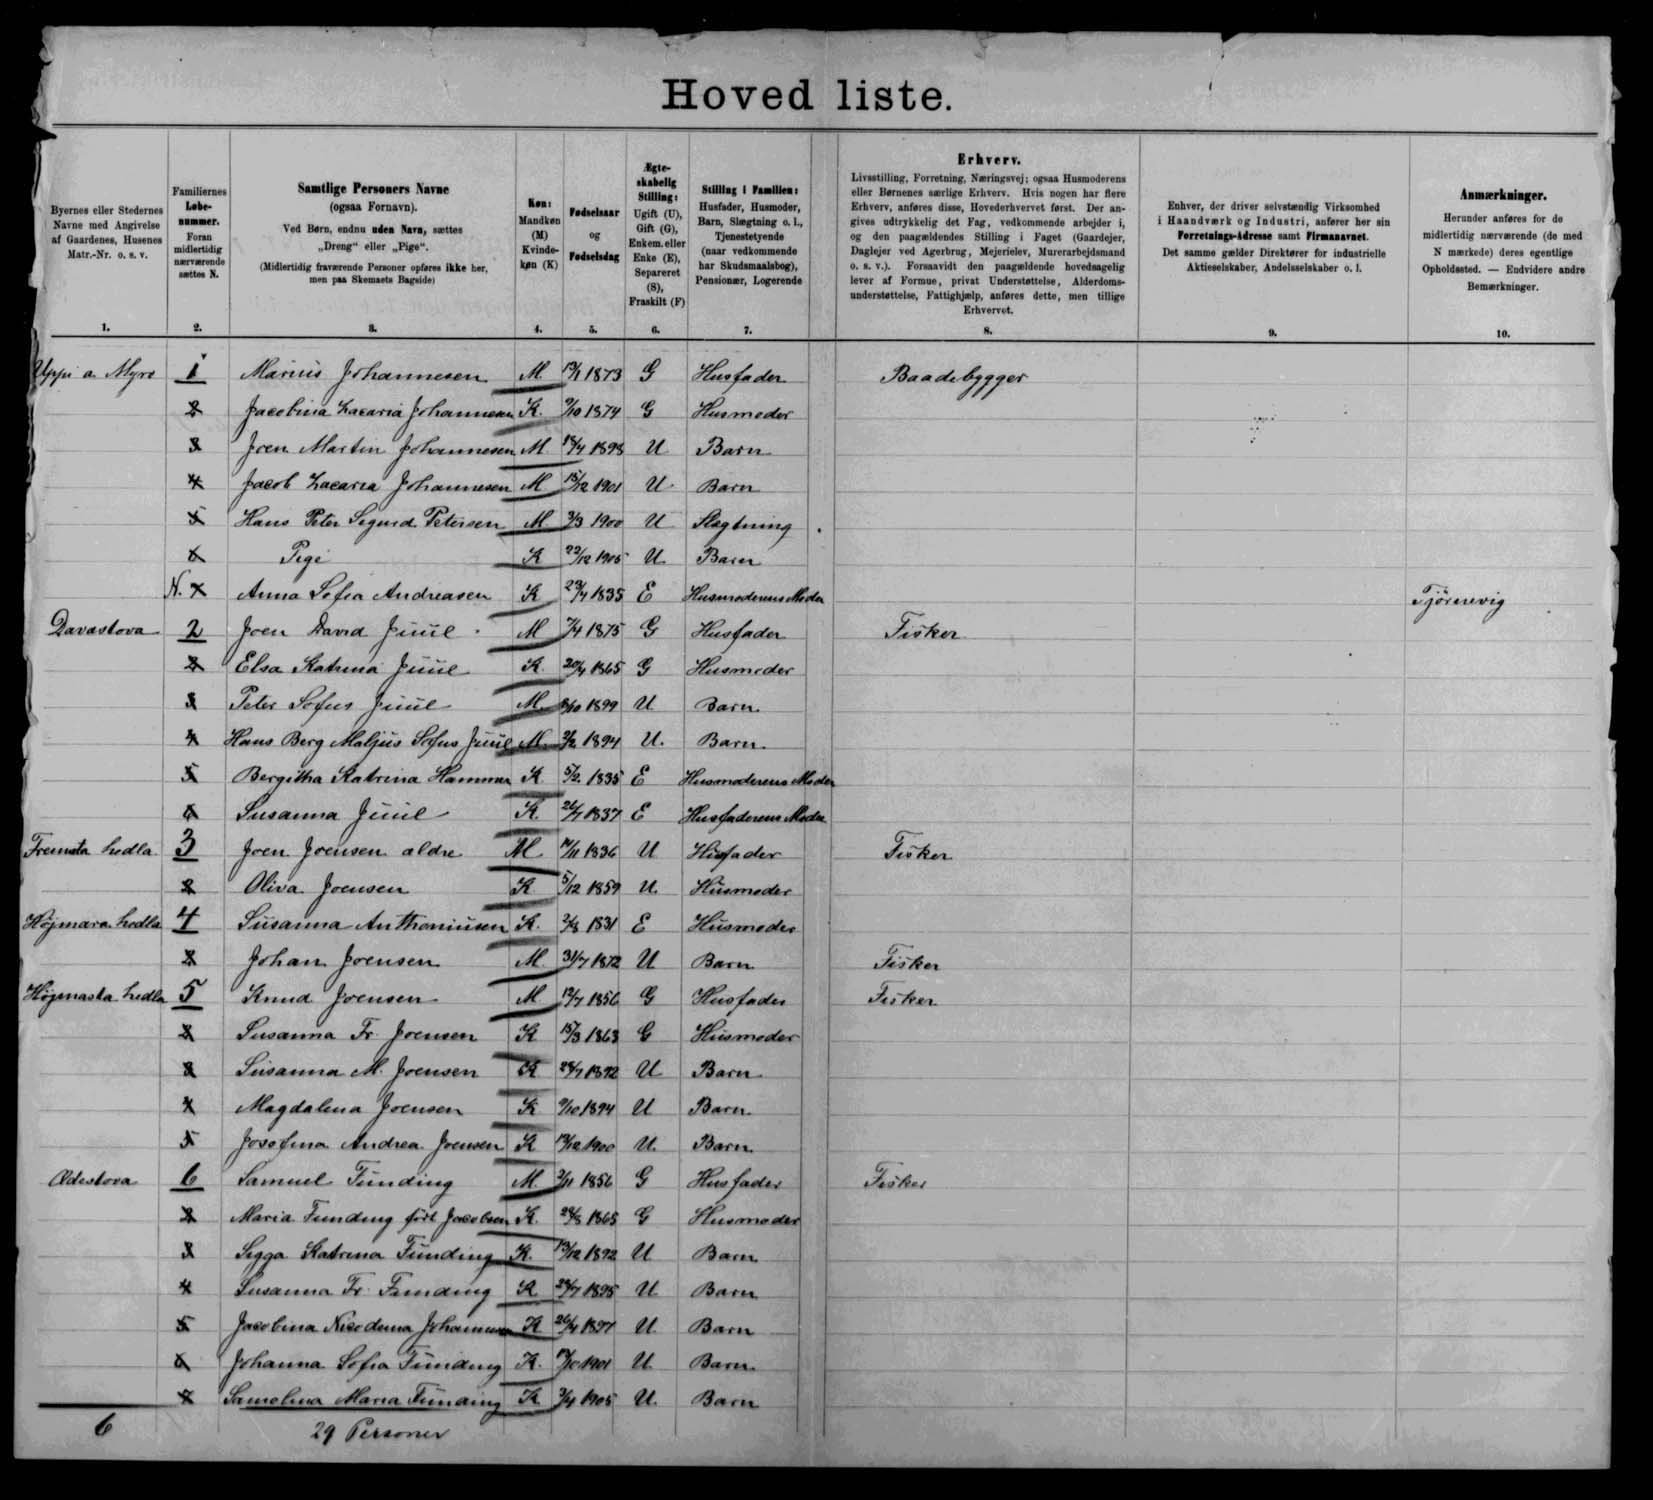 Hoved liste.
Byernes eller Stedernes Navne med Angivelse af Gaardenes, Husenes Matr.-Nr. o. s. v.
Familiernes Løbenummer. Foran midlertidig nærværende sættes N.
Samtlige Personers Navne (ogsaa Fornavn). Ved Børn, endnu uden Navn, sættes „Dreng“ eller „Pige“. (Midlertidig fraværende Personer opføres ikke her, men paa Skemaets Bagside)
Køn: Mandkøn (M) Kvindekøn (K)
Fødselsaar og Fødselsdag
Ægteskabelig Stilling: Ugift (U), Gift (G), Enkem. eller Enke (E), Separeret (S), Fraskilt (F)
Stilling i Familien: Husfader, Husmoder, Barn, Slægtning o. l., Tjenestetyende (naar vedkommende har Skudsmaalsbog), Pensionær, Logerende
Erhverv. Livsstilling, Forretning, Næringsvej; ogsaa Husmoderens eller Børnenes særlige Erhverv. Hvis nogen har flere Erhverv, anføres disse, Hovederhvervet først. Der angives udtrykkelig det Fag, vedkommende arbejder i, og den paagældendes Stilling i Faget (Gaardejer, Daglejer ved Agerbrug, Mejerielev, Murerarbejdsmand o. s. v.). Forsaavidt den paagældende hovedsagelig lever af Formue, privat Understøttelse, Alderdomsunderstøttelse, Fattighjælp, anføres dette, men tillige Erhvervet.
Enhver, der driver selvstændig Virksomhed i Haandværk og Industri, anfører her sin Forretnings-Adresse samt Firmanavnet. Det samme gælder Direktører for industrielle Aktieselskaber, Andelsselskaber o. l.
Anmærkninger. Herunder anføres for de midlertidig nærværende (de med N mærkede) deres egentlige Opholdssted. — Endvidere andre Bemærkninger.
1. 2. 3. 4. 5. 6. 7. 8. 9. 10.
Uppi a Myro 1 Marius Johannesen M 1873 G Husfader Baadebygger
2 Jacobina Zacaria Johannesen K. 9/10 1874 G Husmoder
3 Joen Martin Johannesen M. 18/4 1898 U Barn
4 Jacob Zacaria Johannesen M 15/12 1901 U Barn
5 Hans Peter Sigurd Petersen M 3/3 1900 U Slægtning
6 Pige K 22/12 1905 U. Barn
N. 7 Anna Sofia Andreasen K 23/4 1835 E Husmoderens Moder Tjörnevig
Davastova 2 Joen David Juul M 7/4 1875 G Husfader Fisker
2 Elsa Katrina Juul K. 20/4 1865 G Husmoder
3 Peter Sofus Juul M. 1899 U Barn
4 Hans Berg Maljus Sofus Juul M. 2/2 1894 U. Barn
5 Bergitha Katrina Hammer K 5/2 1835 E Husmoderens Moder
6 Susanna Juul K. 26/7 1837 E Husfaderens Moder
Fremsta hedla 3 Joen Joensen ældre M 14/11 1836 U Husfader Fisker
2 Oliva Joensen K 5/12 1859 U. Husmoder
Højmara hedla 4 Susanna Anthoniusen K. 2/8 1831 E Husmoder
2 Johan Joensen M. 31/7 1872 U Barn Fisker
Højmasta hedla 5 Knud Joensen M 12/7 1856 G Husfader Fisker
2 Susanna Fr. Joensen K 15/3 1863 G Husmoder
3 Susanna M. Joensen K 28/7 1892 U Barn
4 Magdalena Joensen K 9/10 1894 U Barn
5 Josefina Andrea Joensen K 13/12 1900 U. Barn
Ødestova 6 Samuel Funding M. 2/11 1856 G Husfader Fisker
2 Maria Funding født Jacobsen K. 28/8 1865 G Husmoder
3 Sigga Katrina Funding K. 13/12 1892 U Barn
4 Susanna Fr. Funding K 28/7 1895 U Barn
5 Jacobina Nicodema Johannesen K 26/4 1897 U. Barn
6 Johanna Sofia Funding K. 1901 U Barn
7 Samolina Maria Funding K 3/4 1905 U. Barn
6 29 Personer